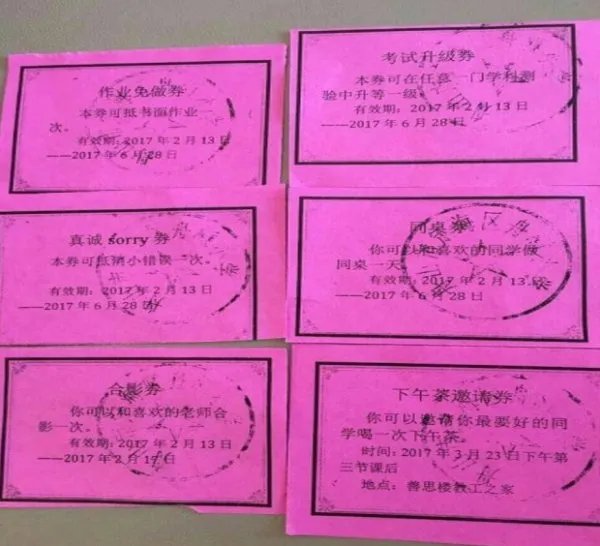 作业免做券
本券可抵书面作业
次。
有效期：2017年2月13日
——2017年6月28日
考试升级券
本券可在任意一门学科测
验中升等一级。
有效期：2017年2月13日
——2017年6月28日
真诚 sorry 券
本券可抵消小错误一次。
有效期：2017年2月13日
——2017年6月28日
同桌券
你可以和喜欢的同学做
同桌一天。
有效期：2017年2月13日
——2017年6月28日
合影券
你可以和喜欢的老师合
影一次。
有效期：2017年2月13日
——2017年2月17日
下午茶邀请券
你可以邀请你最要好的同
学喝一次下午茶。
时间：2017年3月23日下午第
三节课后
地点：善思楼教工之家
海区